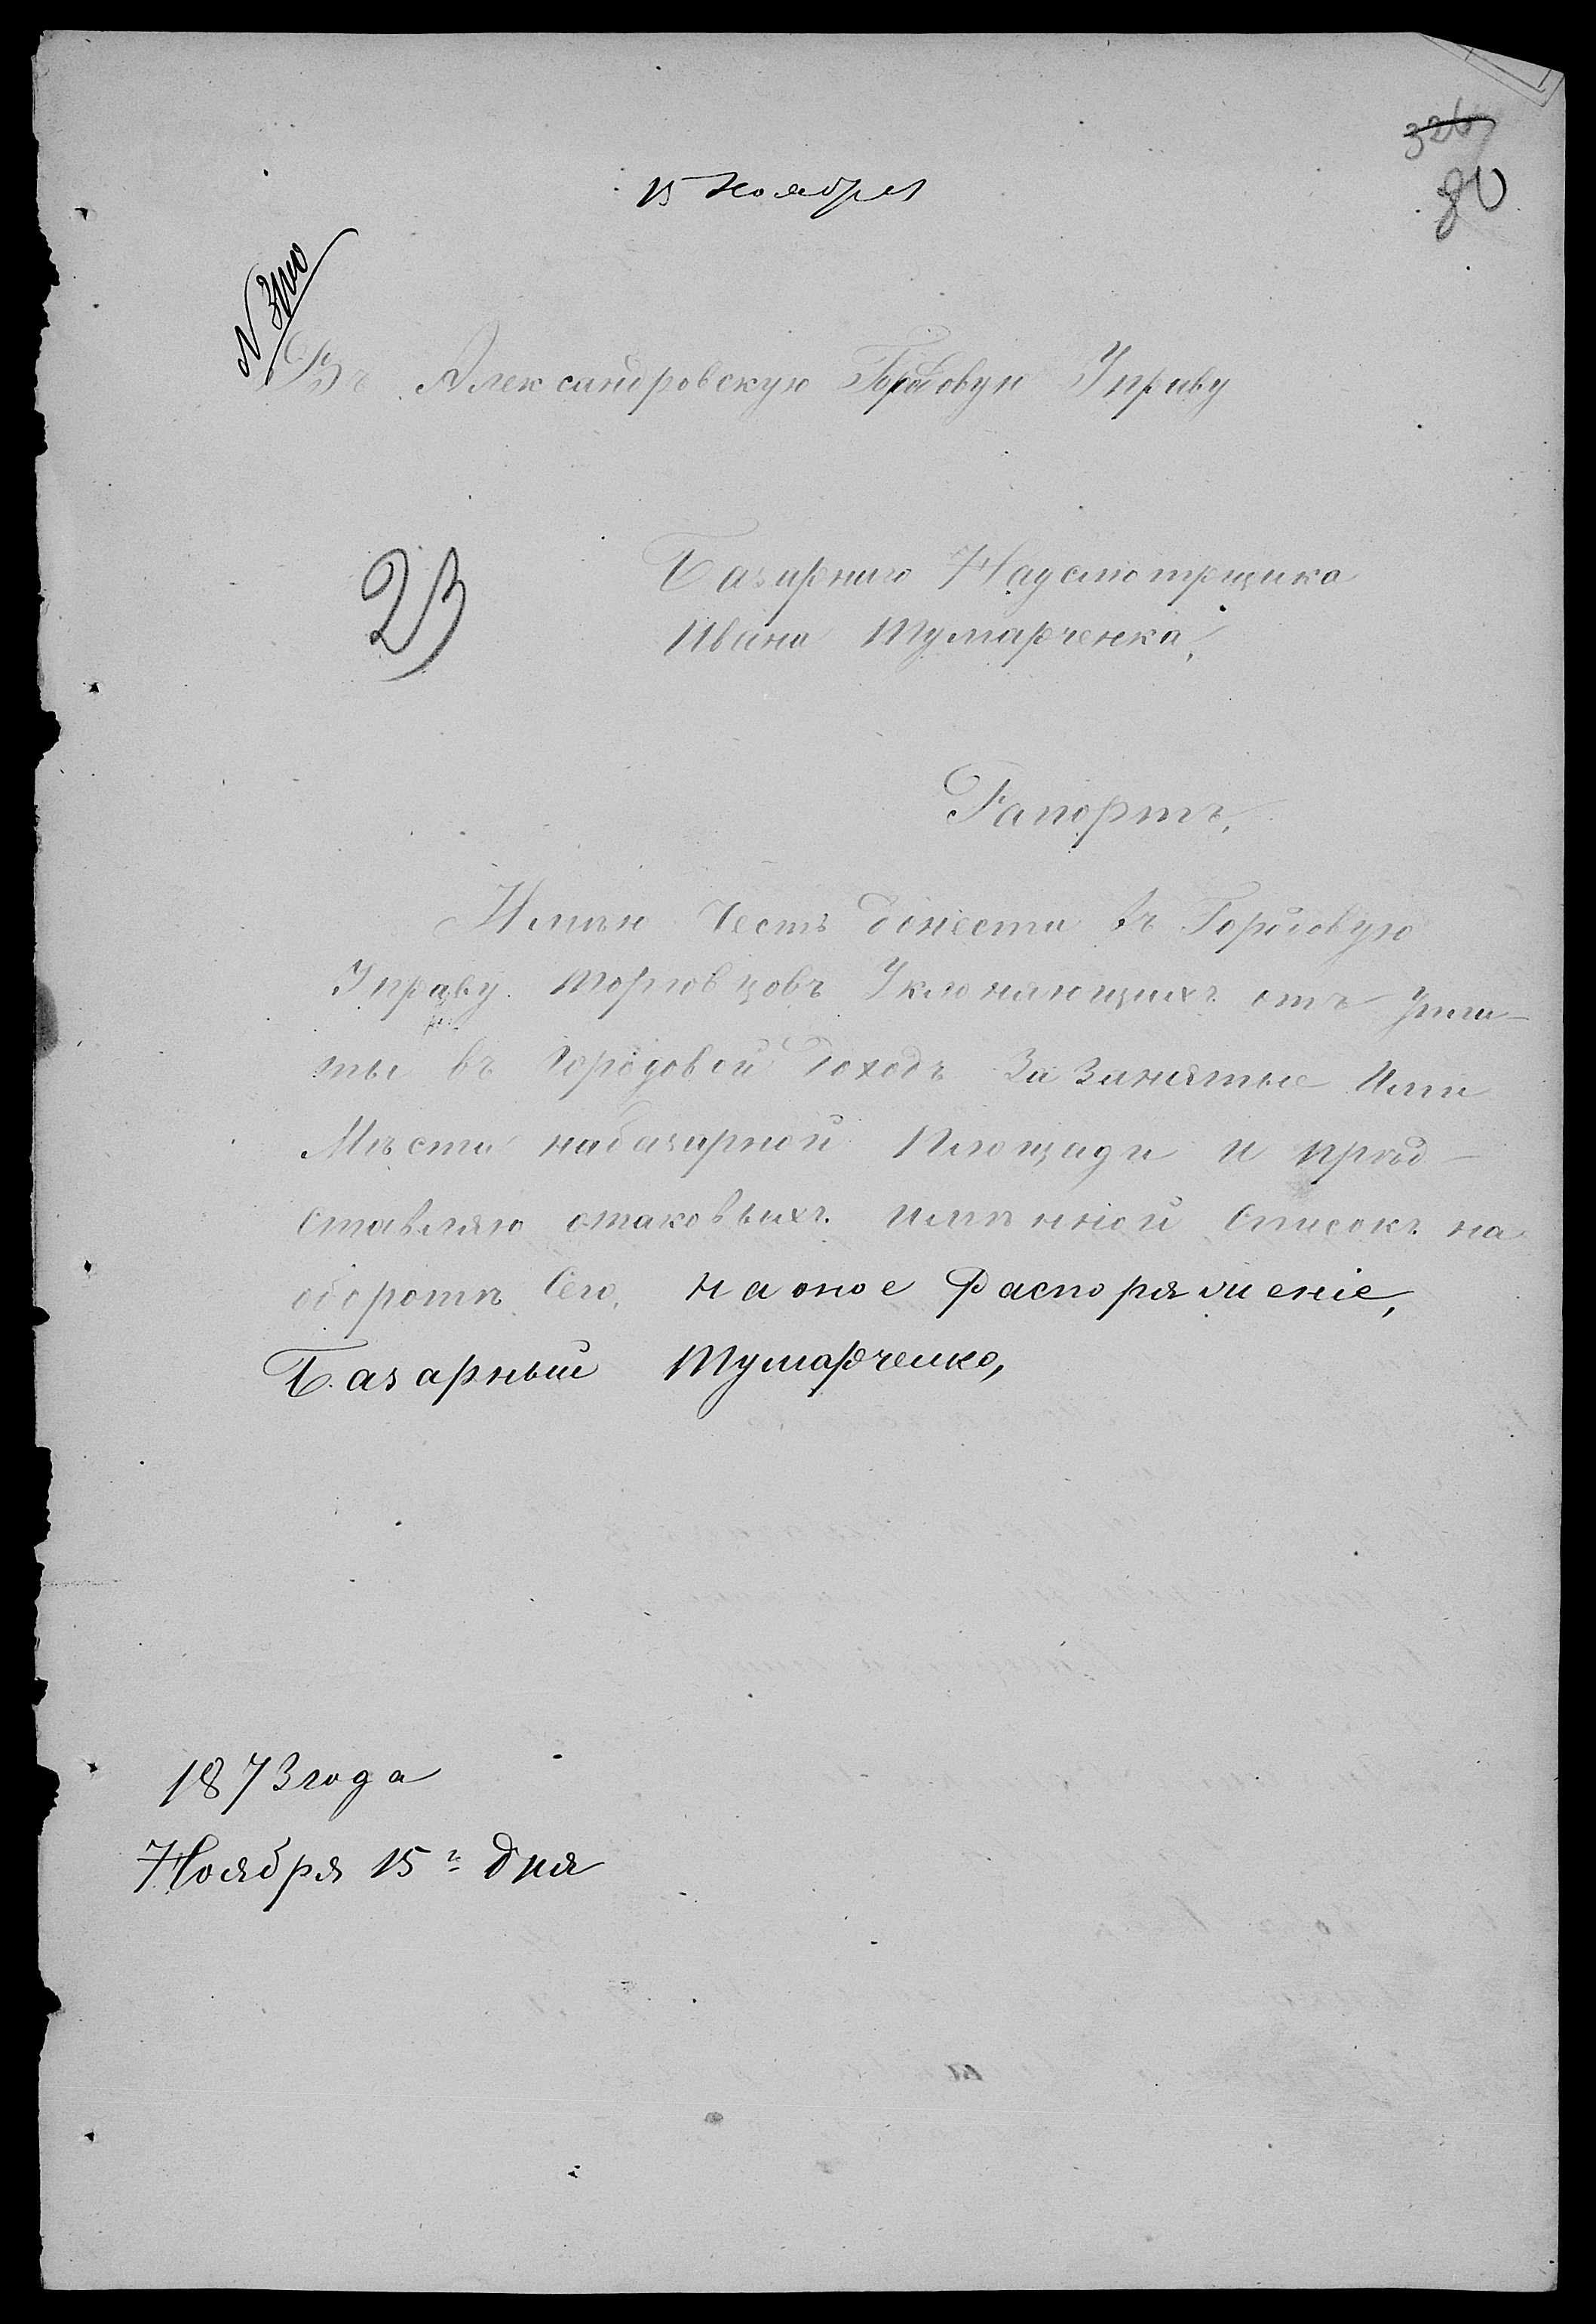 326
80
15 Ноября
N 3110
Въ Александровскую Городовую Управу
23
Базарнаго Надсмотрщика
Ивана Тумарченка,
Рапортъ,
Имѣю Честь донести въ Городовую
Управу торговцовъ Уклоняющихъ отъ упла-
ты въ Городовой Доходъ За Занятые Ими
Мѣста набазарной Площади и пред-
Ставляю отаковыхъ имянной Списокъ на
оборотѣ Сего, на оное Распоряженіе,
Базарный Тумарченко,
1873 года
Ноября 15г дня